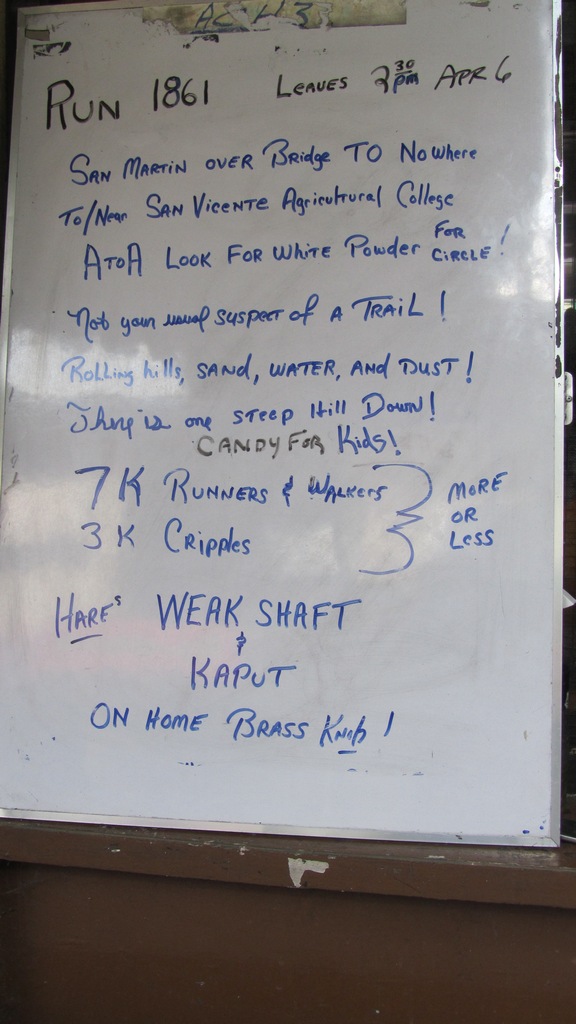 AC H3
RUN 1861 LEAVES 2 30 PM APR 6
SAN MARTIN OVER BRIDGE TO NOWHERE
TO/NEAR SAN VICENTE AGRICULTURAL COLLEGE
A TO A LOOK FOR WHITE POWDER FOR CIRCLE!
Not your usual suspect of A TRAIL!
Rolling hills, SAND, WATER, AND DUST!
There is one STEEP Hill Down!
CANDY FOR Kids!
7K RUNNERS & WALKERS
3K CRIPPLES
MORE OR LESS
HARES WEAK SHAFT
&
KAPUT
ON HOME BRASS Knob!